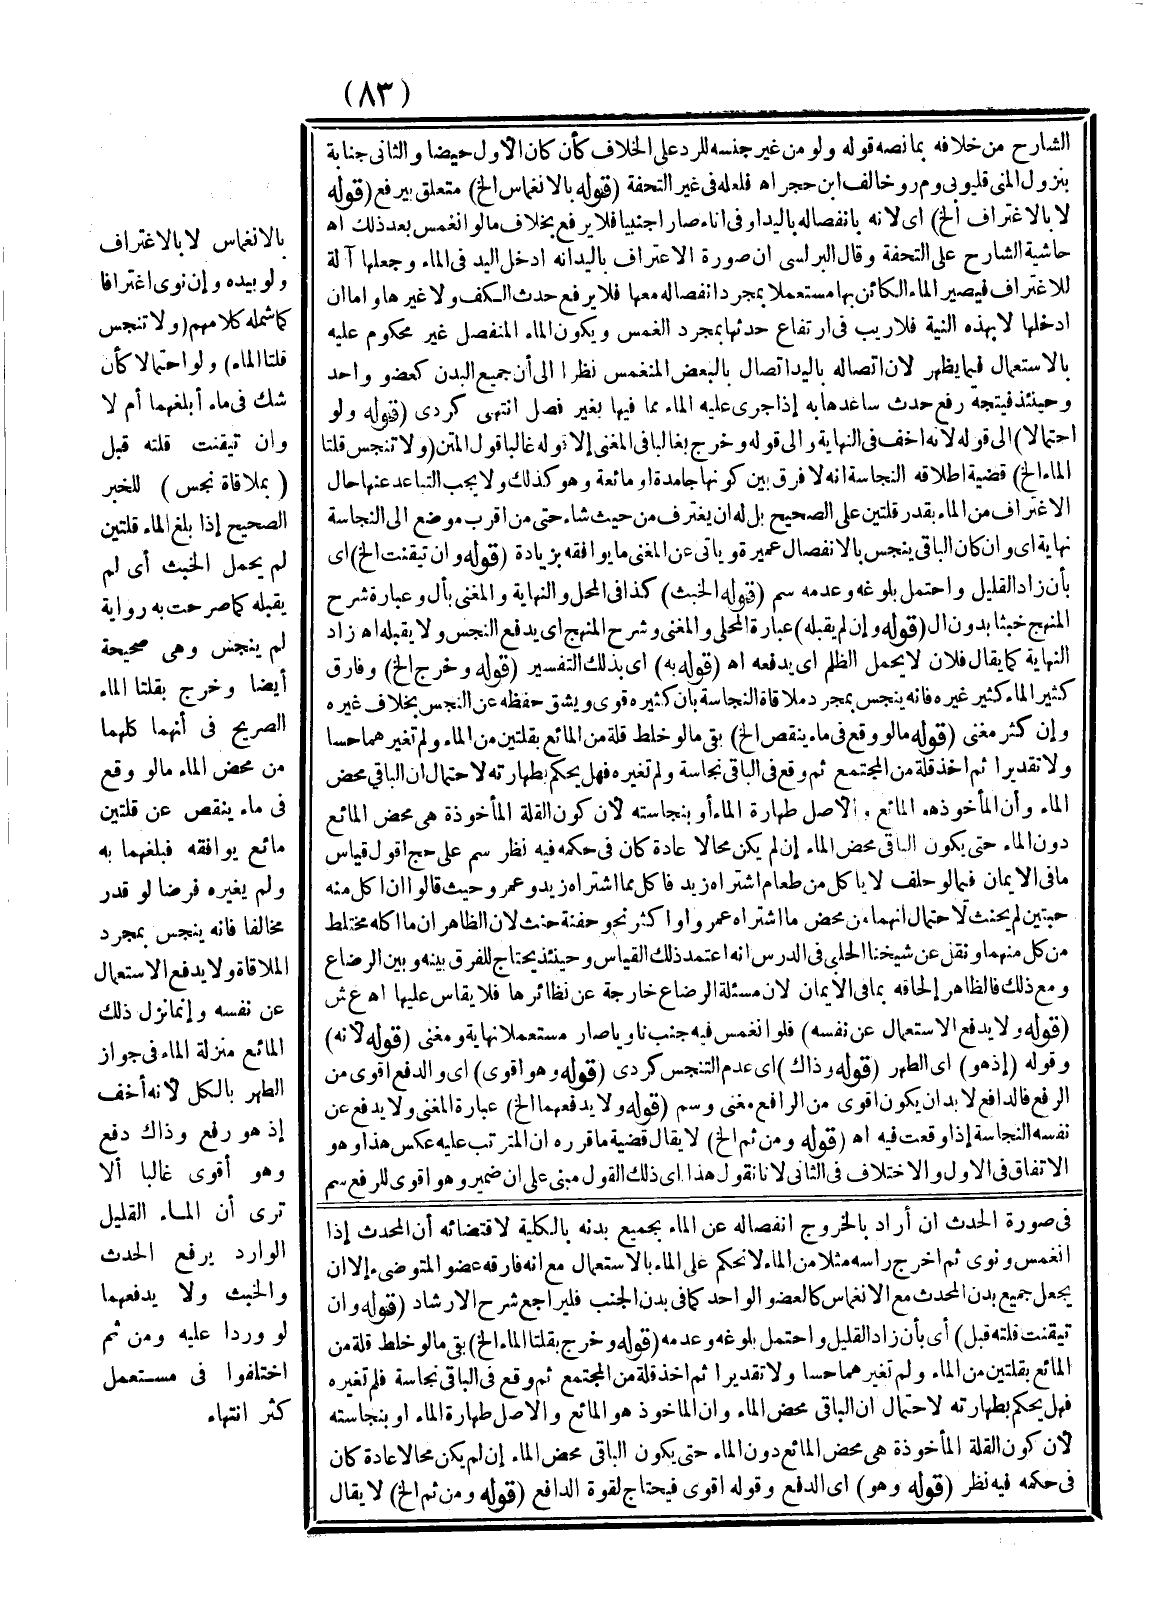 (٨٣)
الشارح من خلافه بما نصه قوله ولو من غير جنسه للرد على الخلاف كأن كان الاول حيضا والثانى جنابة
بنزول المنى قليوبى وم ر وخالف ابن حجر اه فلعله فى غير التحفة (قوله بالانغماس الخ) متعلق بيرفع (قوله
لا بالاغتراف الخ) اى لانه بانفصاله باليد او فى اناء صار اجنبيا فلا يرفع بخلاف مالو انغمس بعد ذلك اه
حاشية الشارح على التحفة وقال البرلسى ان صورة الاغتراف باليد انه ادخل اليد فى الماء وجعلها آلة
للاغتراف فيصير الماء الكائن بها مستعملا بمجرد انفصاله معها فلا يرفع حدث الكف ولا غيرها واما ان
ادخلها لا بهذه النية فلا ريب فى ارتفاع حدثها بمجرد الغمس ويكون الماء المنفصل غير محكوم عليه
بالاستعمال فيما يظهر لان اتصاله باليد اتصال بالبعض المنغمس نظرا الى أن جميع البدن كعضو واحد
وحينئذ فيتجه رفع حدث ساعدها به إذا جرى عليه الماء مما فيها بغير فصل انتهى كردى (قوله ولو
احتمالا) الى قوله لانه اخف فى النهاية والى قوله وخرج بغالبا فى المغنى إلا قوله غالبا قول المتن (ولا تنجس قلتا
الماء الخ) قضية اطلاقه النجاسة انه لا فرق بين كونها جامدة او مائعة وهو كذلك ولا يجب التباعد عنها حال
الاغتراف من الماء بقدر قلتين على الصحيح بل له ان يغترف من حيث شاء حتى من اقرب موضع الى النجاسة
نهاية اى وان كان الباقى ينجس بالانفصال عميرة وياتى عن المغنى ما يوافقه بزيادة (قوله وان تيقنت الخ) اى
بأن زاد القليل واحتمل بلوغه وعدمه سم (قوله الخبث) كذا فى المحلى والنهاية والمغنى بأل وعبارة شرح
المنهج خبثا بدون ال (قوله وإن لم يقبله) عبارة المحلى والمغنى وشرح المنهج اى يدفع النجس ولا يقبله اه زاد
النهاية كما يقال فلان لا يحمل الظلم اى يدفعه اه (قوله به) اى بذلك التفسير (قوله وخرج الخ) وفارق
كثير الماء كثير غيره فانه ينجس بمجرد ملاقاة النجاسة بان كثيره قوى ويشق حفظه عن النجس بخلاف غيره
وإن كثر مغنى (قوله مالو وقع فى ماء ينقص الخ) بقى مالو خلط قلة من المائع بقلتين من الماء ولم تغيرهما حسا
ولا تقديرا ثم اخذ قلة من المجتمع ثم وقع فى الباقى نجاسة ولم تغيره فهل يحكم بطهارته لاحتمال ان الباقي محض
الماء وأن المأخوذ هو المائع والاصل طهارة الماء أو بنجاسته لأن كون القلة المأخوذة هى محض المائع
دون الماء حتى يكون الباقى محض الماء إن لم يكن محالا عادة كان فى حكمه فيه نظر سم على حج اقول قياس
ما فى الايمان فيما لو حلف لا ياكل من طعام اشتراه زيد فاكل مما اشتراه زيد وعمر وحيث قالوا ان اكل منه
حبتين لم يحنث لاحتمال انهما من محض ما اشتراه عمر واو اكثر نحو حفنة حنث لان الظاهر ان ما اكله مختلط
من كل منهما ونقل عن شيخنا الحلبى فى الدرس انه اعتمد ذلك القياس وحينئذ يحتاج للفرق بينه وبين الرضاع
ومع ذلك فالظاهر إلحاقه بما فى الايمان لان مسئلة الرضاع خارجة عن نظائرها فلا يقاس عليها اه ع ش
(قوله ولا يدفع الاستعمال عن نفسه) فلو انغمس فيه جنب ناويا صار مستعملا نهاية ومغنى (قوله لانه)
وقوله (إذ هو) اى الطهر (قوله وذاك) اى عدم التنجس كردى (قوله وهو اقوى) اى والدفع اقوى من
الرفع فالدافع لا بد ان يكون اقوى من الرافع مغنى وسم (قوله ولا يدفعهما الخ) عبارة المغنى ولا يدفع عن
نفسه النجاسة إذا وقعت فيه اه (قوله ومن ثم الخ) لا يقال قضية ما قرره ان المترتب عليه عكس هذا وهو
الاتفاق فى الاول والاختلاف فى الثانى لانا نقول هذا اى ذلك القول مبنى على ان ضمير وهو اقوى للرفع سم
بالانغماس لا بالاغتراف
ولو بيده وإن نوى اغترافا
كما شمله كلامهم (ولا تنجس
قلتا الماء) ولو احتمالا كأن
شك فى ماء أبلغهما أم لا
وان تيقنت قلته قبل
(بملاقاة نجس) للخبر
الصحيح إذا بلغ الماء قلتين
لم يحمل الخبث أى لم
يقبله كما صرحت به رواية
لم ينجس وهى صحيحة
أيضا وخرج بقلتا الماء
الصريح فى أنهما كلهما
من محض الماء مالو وقع
فى ماء ينقص عن قلتين
مائع يوافقه فبلغهما به
ولم يغيره فرضا لو قدر
مخالفا فانه ينجس بمجرد
الملاقاة ولا يدفع الاستعمال
عن نفسه وإنما نزل ذلك
المائع منزلة الماء فى جواز
الطهر بالكل لأنه أخف
إذ هو رفع وذاك دفع
وهو أقوى غالبا ألا
ترى أن الماء القليل
الوارد يرفع الحدث
والخبث ولا يدفعهما
لو وردا عليه ومن ثم
اختلفوا فى مستعمل
كثر انتهاء
فى صورة الحدث ان أراد بالخروج انفصاله عن الماء بجميع بدنه بالكلية لاقتضائه أن المحدث إذا
انغمس ونوى ثم اخرج راسه مثلا من الماء لا نحكم على الماء بالاستعمال مع انه فارقه عضو المتوضىء إلا ان
يجعل جميع بدن المحدث مع الانغماس كالعضو الواحد كما فى بدن الجنب فليراجع شرح الارشاد (قوله وان
تيقنت قلته قبل) أى بأن زاد القليل واحتمل بلوغه وعدمه (قوله وخرج بقلتا الماء الخ) بقى مالو خلط قلة من
المائع بقلتين من الماء ولم تغيرهما حسا ولا تقديرا ثم اخذ قلة من المجتمع ثم وقع فى الباقى نجاسة فلم تغيره
فهل يحكم بطهارته لاحتمال ان الباقى محض الماء وان الماخوذ هو المائع والاصل طهارة الماء او بنجاسته
لأن كون القلة المأخوذة هى محض المائع دون الماء حتى يكون الباقى محض الماء إن لم يكن محالا عادة كان
فى حكمه فيه نظر (قوله وهو) اى الدفع وقوله اقوى فيحتاج لقوة الدافع (قوله ومن ثم الخ) لا يقال